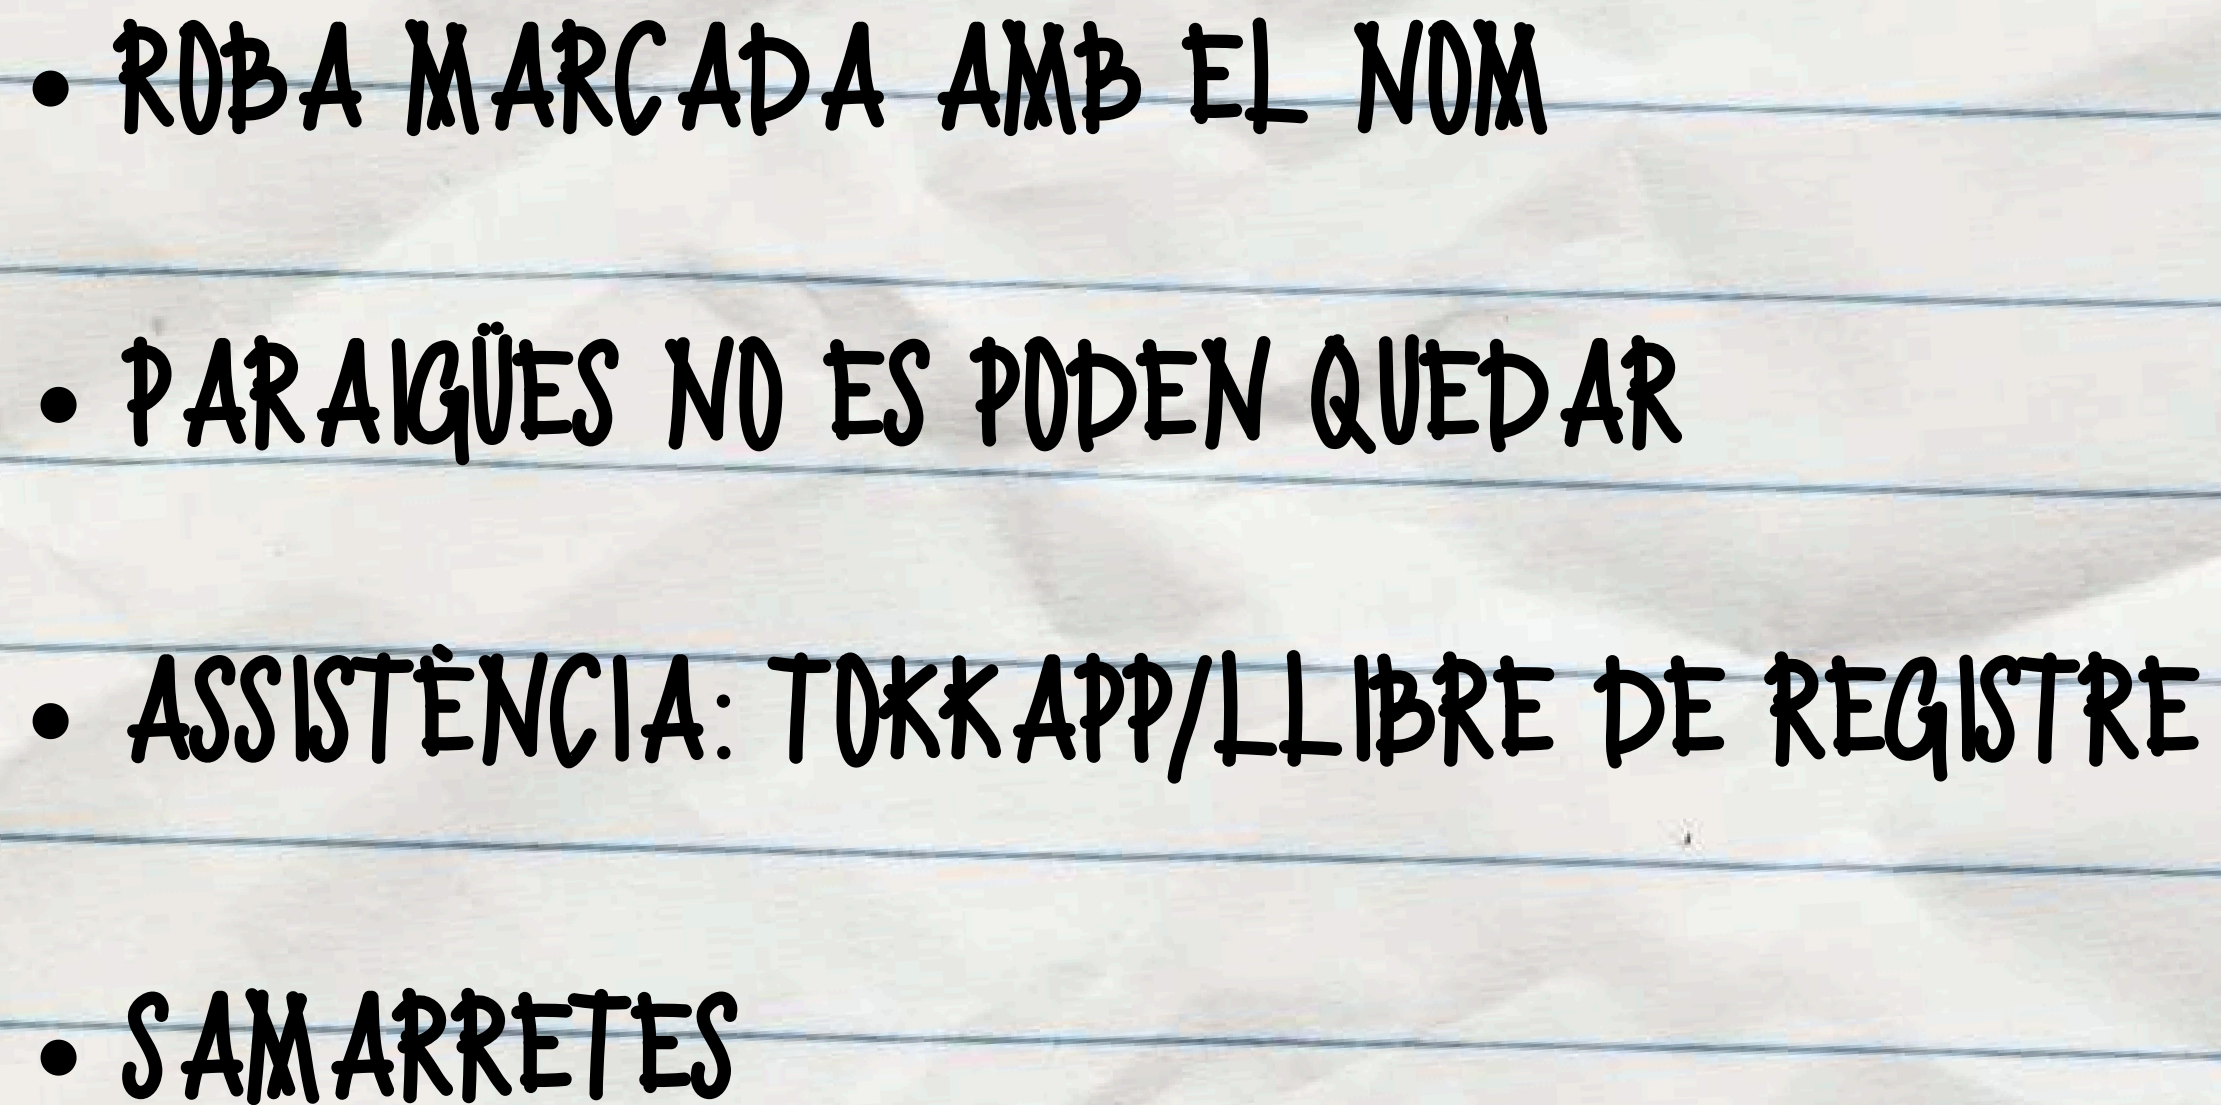 • ROBA MARCADA AMB EL NOM
• PARAIGÜES NO ES PODEN QUEDAR
• ASSISTÈNCIA: TOKKAPP/LLIBRE DE REGISTRE
• SAMARRETES